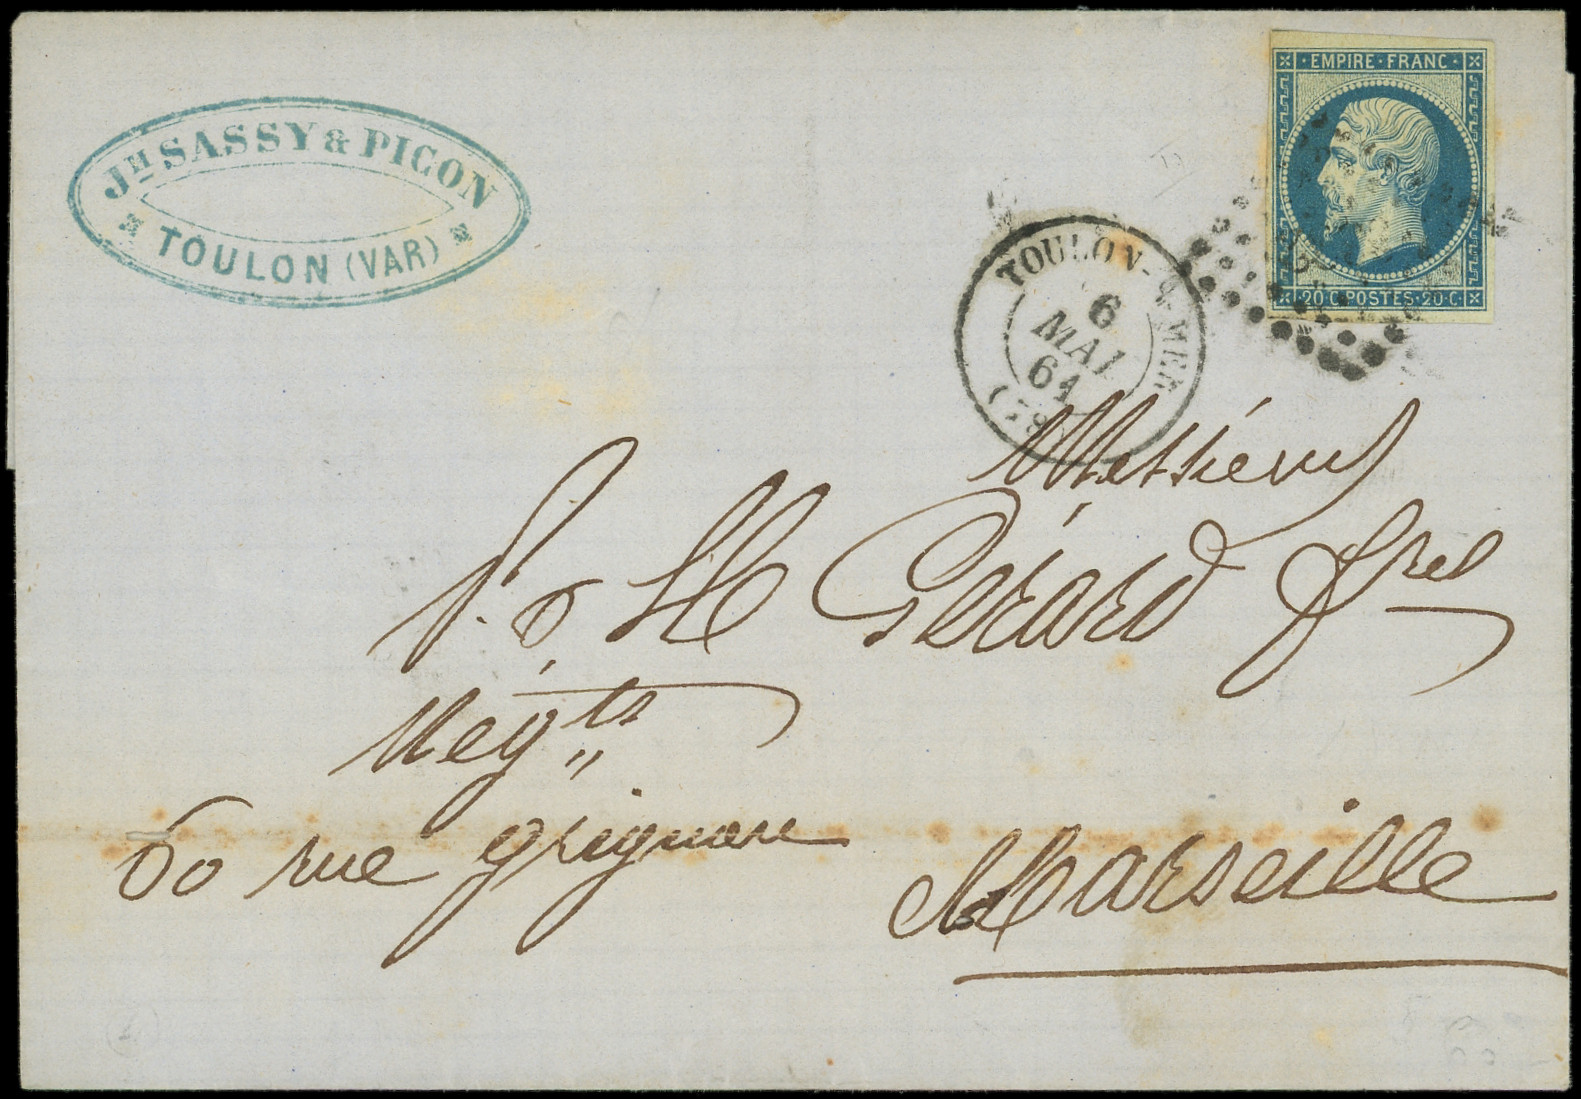 JH SASSY & PICON
TOULON (VAR)
EMPIRE · FRANC ·
20 · C · POSTES · 20 · C ·
TOULON-S-MER
6
MAI
61
(78)
Messieurs
H Gérard fres
Negts
60 rue grignan
Marseille